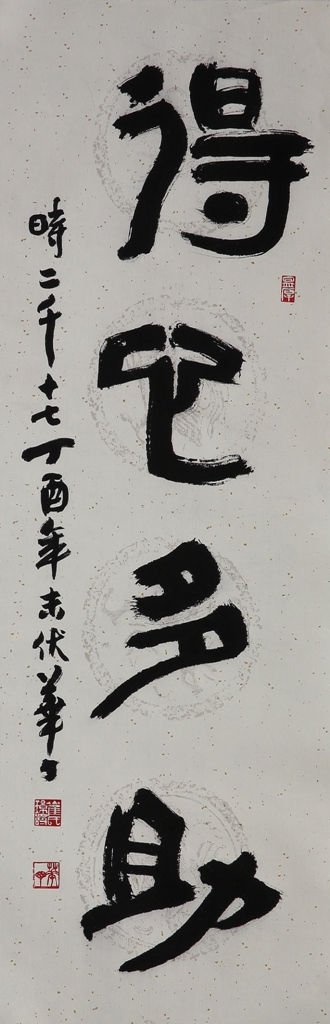 得心多助
時二千十七丁酉年末伏華